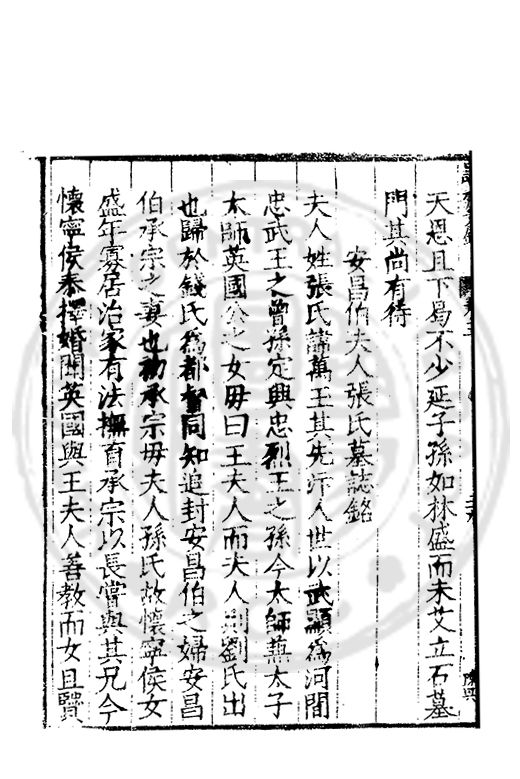 天恩且下曷不少延子孫如林盛而未艾立石墓
門其尚有待
安昌伯夫人張氏墓誌銘
夫人姓張氏諱萬玉其先汴人世以武顯爲河間
忠武王之曾孫定興忠烈王之孫今太師兼太子
太師英國公之女毋曰王夫人而夫人則劉氏出
也歸於錢氏爲都督同知追封安昌伯之婦安昌
伯承宗之妻也初承宗毋夫人孫氏故懷寧侯女
盛年寡居治家有法撫育承宗以長嘗與其兄今
懷寧侯泰擇婚聞英國與王夫人善教而女且賢